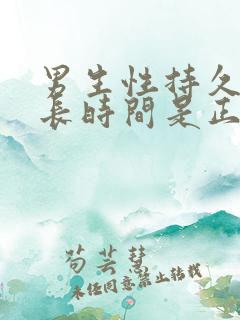 男生性持久
長時間是正
荀芸慧
未经同意禁止转载